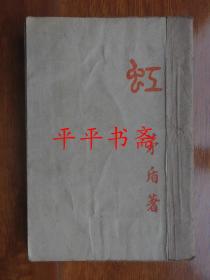 虹
茅盾著
平平书斋